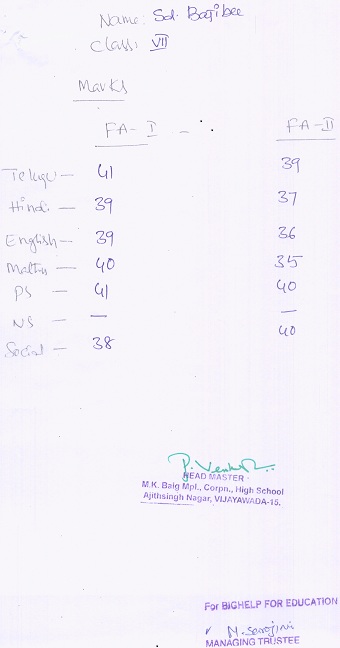 Name: Sd. Bajibee
Class: VII
Marks
FA-I - FA-II
Telugu — 41 39
Hindi — 39 37
English — 39 36
Maths — 40 35
PS — 41 40
NS — — —
Social — 38 40
HEAD MASTER
M.K. Baig Mpl., Corpn., High School
Ajithsingh Nagar, VIJAYAWADA-15.
For BIGHELP FOR EDUCATION
N. Sarojini
MANAGING TRUSTEE